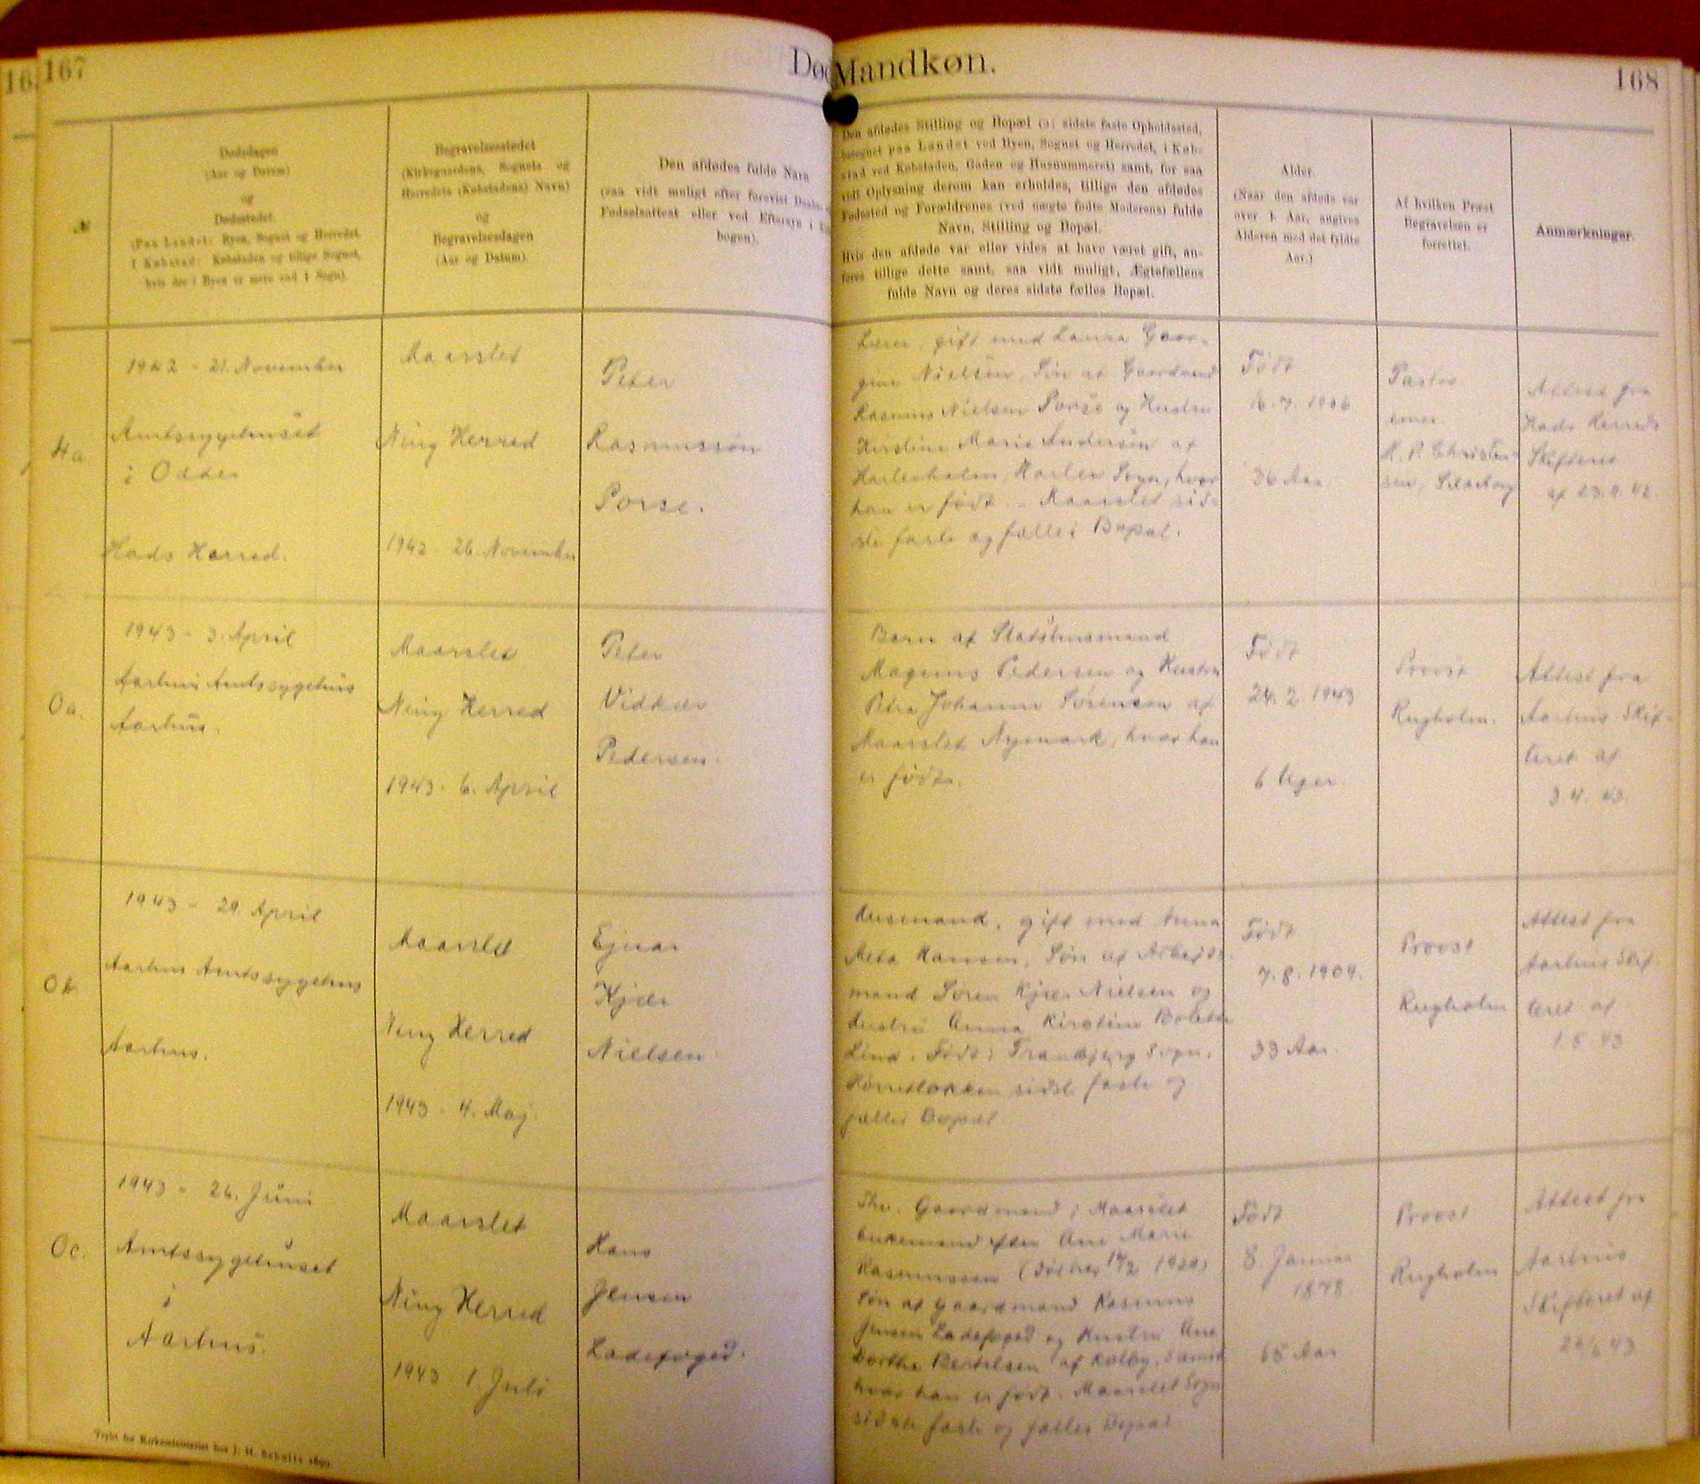 167
Mandkøn.
168
№
Dødsdagen
(Aar og Datum)
og
Dødsstedet.
(Paa Landet: Byen, Sognet og Herredet.
I Købstad: Købstaden og tillige Sognet,
hvis der i Byen er mere end 1 Sogn).
Begravelsesstedet
(Kirkegaardens, Sognets og
Herredets (Købstadens) Navn)
og
Begravelsesdagen
(Aar og Datum).
Den afdødes fulde Navn
(saa vidt muligt efter forevist Daabs-
Fødselsattest eller ved Eftersyn i
bogen).
Den afdødes Stilling og Bopæl (ɔ: sidste faste Opholdssted,
betegnet paa Landet ved Byen, Sognet og Herredet, i Køb-
stad ved Købstaden, Gaden og Husnummeret) samt, for saa
vidt Oplysning derom kan erholdes, tillige den afdødes
Fødested og Forældrenes (ved uægte fødte Moderens) fulde
Navn, Stilling og Bopæl.
Hvis den afdøde var eller vides at have været gift, an-
føres tillige dette samt, saa vidt muligt, Ægtefællens
fulde Navn og deres sidste fælles Bopæl.
Alder.
(Naar den afdøde var
over 1 Aar, angives
Alderen med det fyldte
Aar.)
Af hvilken Præst
Begravelsen er
forrettet.
Anmærkninger.
1942 - 21. November
Amtssygehuset
i Odder
Hads Herred.
Maarslet
Ning Herred
1942 - 26. November
Peter
Rasmussen
Porse.
Lærer, gift med Laura Geor-
gine Nielsen, Søn af Gaardmand
Rasmus Nielsen Porse og Hustru
Kirstine Marie Andersen af
Hørlenholm, Sogn, hvor
han er født. - Maarslet sid-
ste faste og fælles Bopæl.
Født
16.7.1906
36 Aar.
Pastor
emer.
Christen-
sen,
Attest fra
Hads Herreds
Skifteret
0a.
1943 - 3. April
Aarhus Amtssygehus
Aarhus.
Maarslet
Ning Herred
1943 - 6. April
Peter
Vidkær
Pedersen.
Barn af Statshusmand
Mogens Pedersen og Hustru
Petra Johanne Sørensen af
Maarslet Nymark, hvor han
er født.
Født
24. 2. 1943
6 Uger.
Provst
Rugholm.
Attest fra
Aarhus Skif-
teret af
3. 4. 43.
0b.
1943 - 29. April
Aarhus Amtssygehus
Aarhus.
Maarslet
Ning Herred
1943 - 4. Maj.
Ejnar
Kjær
Nielsen.
Husmand, gift med Anna
Meta Hansen, Søn af Arbejds-
mand Søren Kjær Nielsen og
Hustru Anna Kirstine Bolette
Lind. Født i Tranbjerg Sogn.
sidste faste og
fælles Bopæl.
Født
7. 8. 1909.
33 Aar.
Provst
Rugholm
Attest fra
Aarhus Skif-
teret af
1. 5. 43
0c.
1943 - 26. Juni
Amtssygehuset
i
Aarhus.
Maarslet
Ning Herred
1943 1. Juli
Hans
Jensen
Ladefoged.
Fhv. Gaardmand i Maarslet
Enkemand efter Ane Marie
Rasmussen
Søn af Gaardmand Rasmus
Jensen Ladefoged og Hustru Ane
Dorthe Bertelsen af Kolby, Samsø
hvor han er født. Maarslet Sogn
sidste faste og fælles Bopæl.
Født
8. Januar
1878
65 Aar
Provst
Rugholm
Attest fra
Aarhus
Skifteret af
Trykt for Kirkeministeriet hos J. H. Schultz